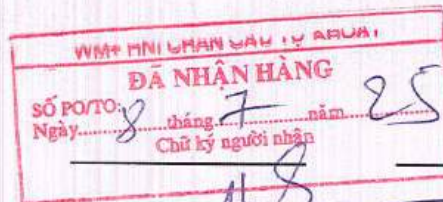 WM+ HNI CHÂN CẦU TỰ KHOÁT
ĐÃ NHẬN HÀNG
SỐ PO/TO:
Ngày 8 tháng 7 năm 25
Chữ ký người nhận